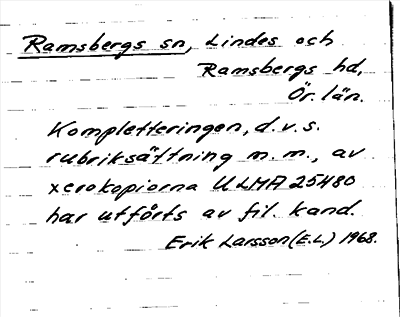 Ramsbergs sn, Lindes och
Ramsbergs hd,
Ör. län.
Kompletteringen, d.v.s.
rubriksättning m.m., av
xerokopiorna ULMA 25480
har utförts av fil. kand.
Erik Larsson (E.L.) 1968.